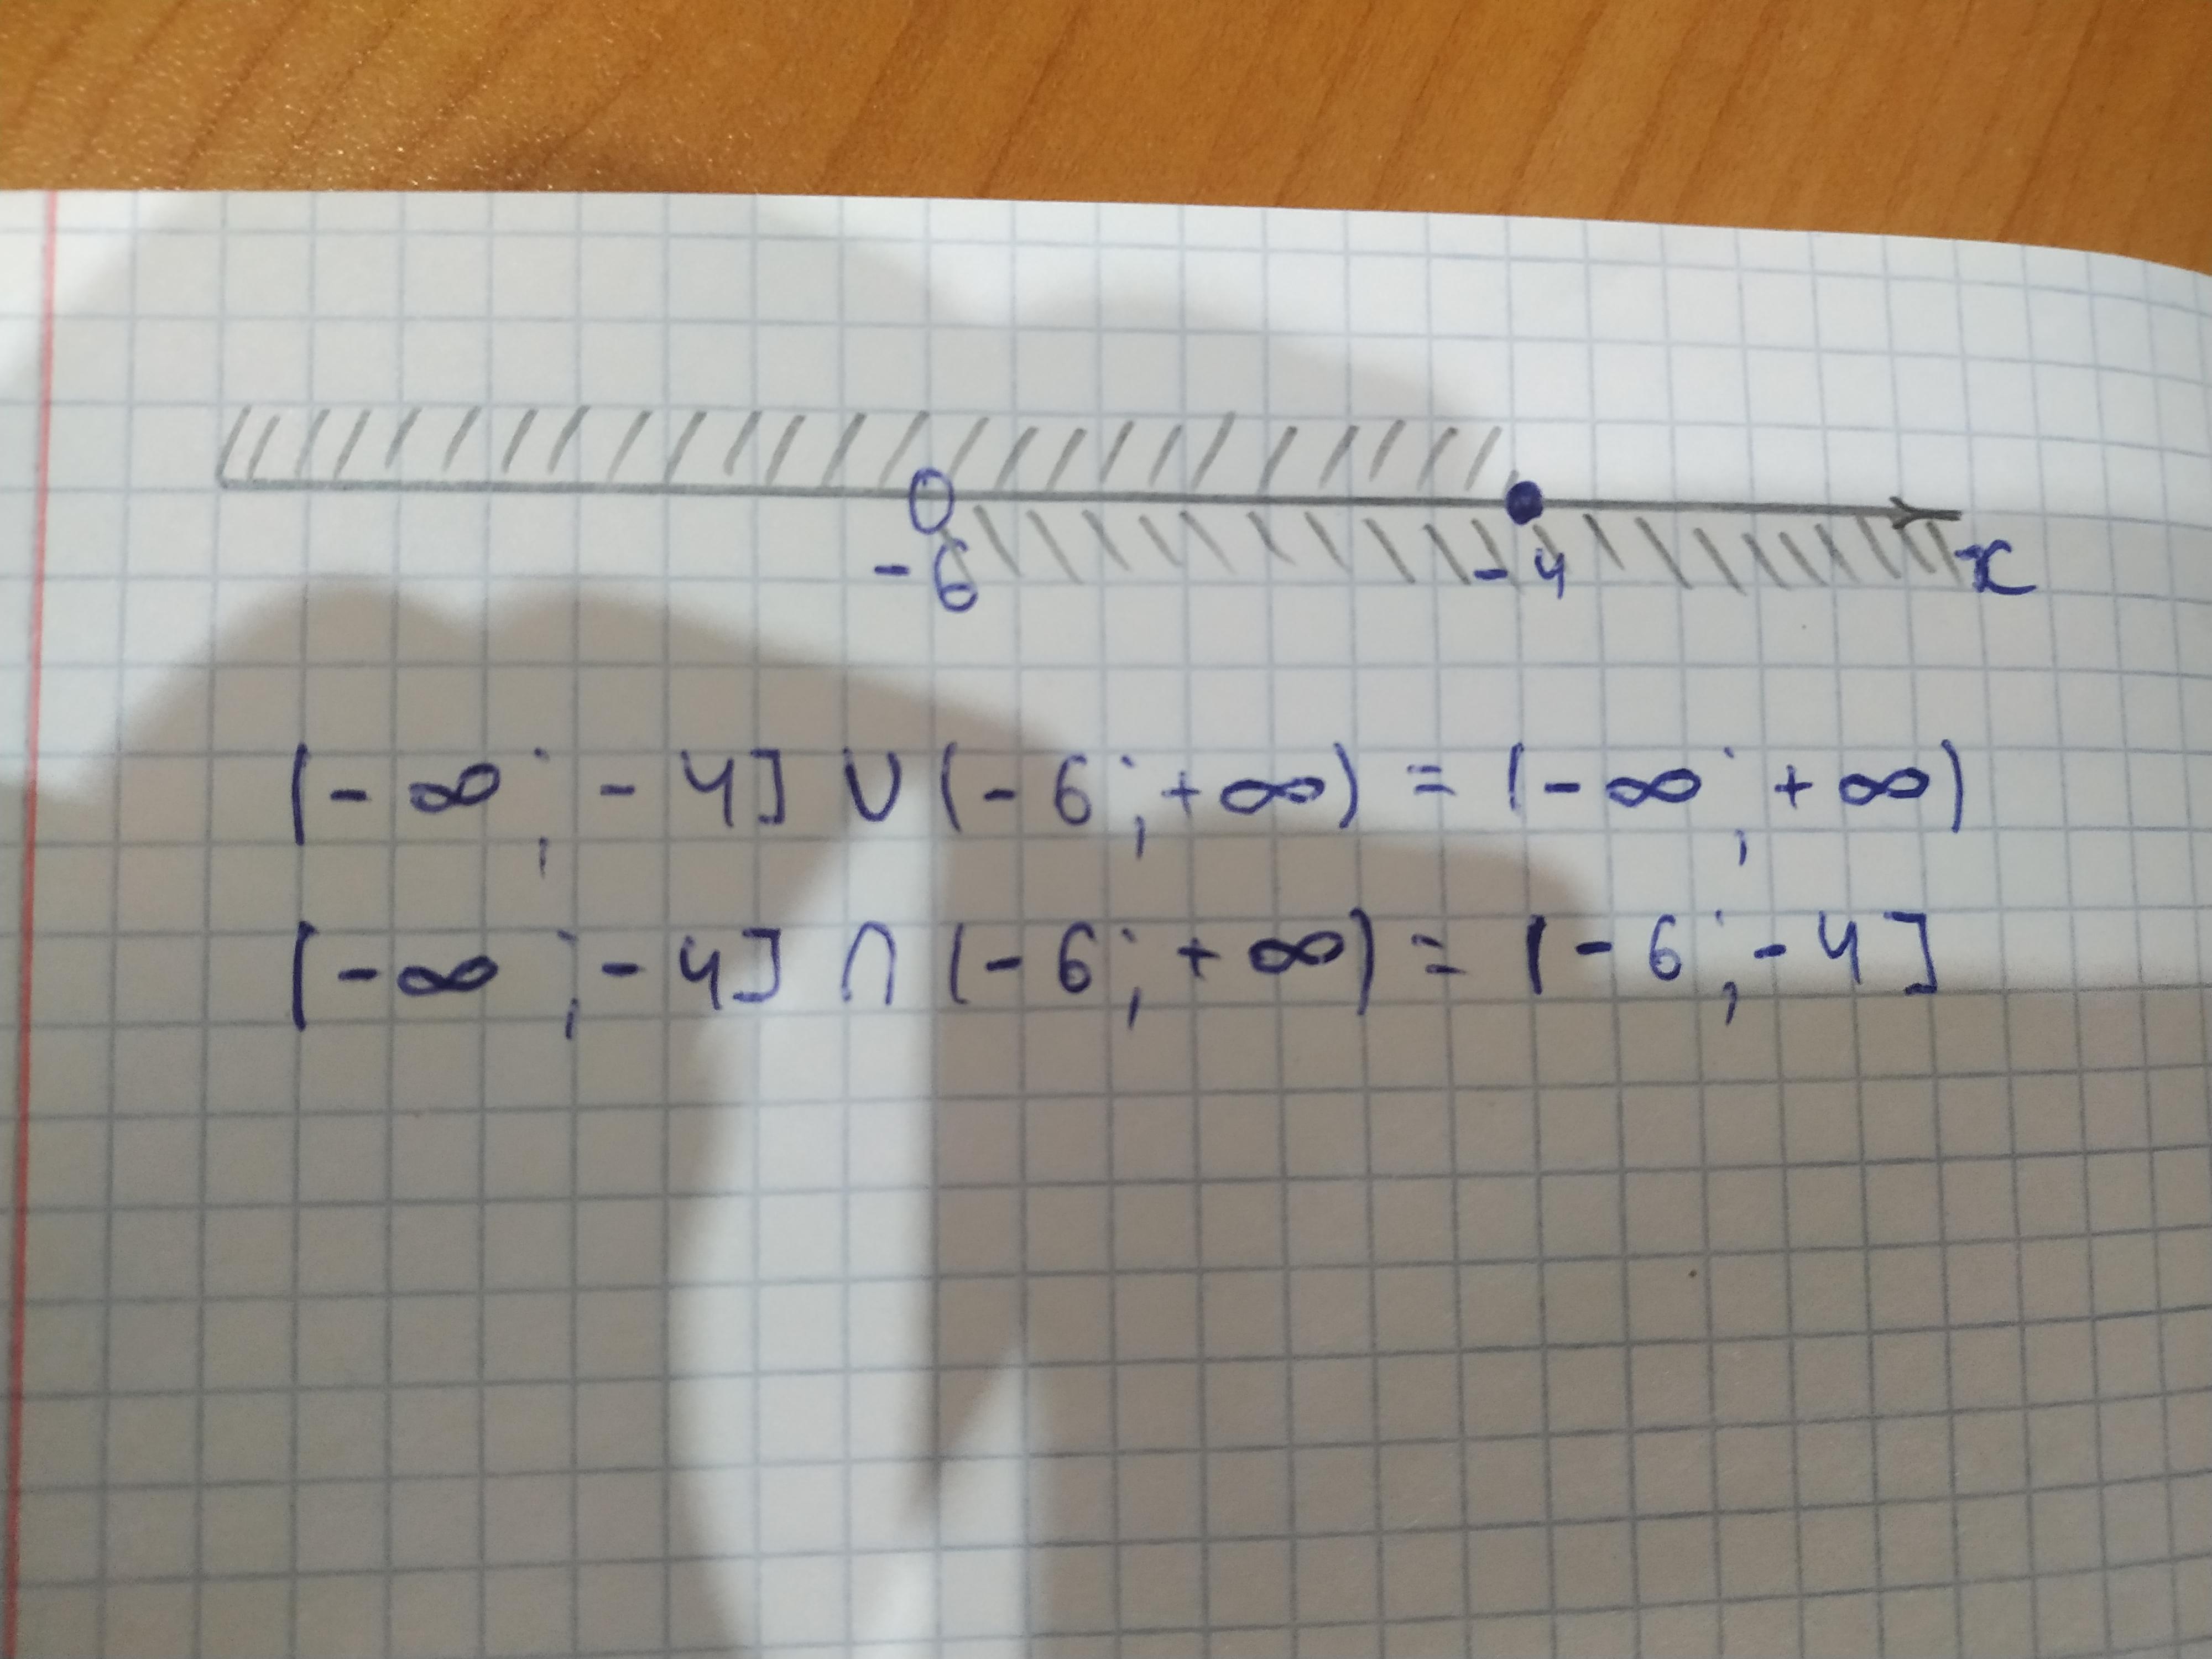 -6 -4 x
(-∞; -4] ∪ (-6; +∞) = (-∞; +∞)
(-∞; -4] ∩ (-6; +∞) = (-6; -4]